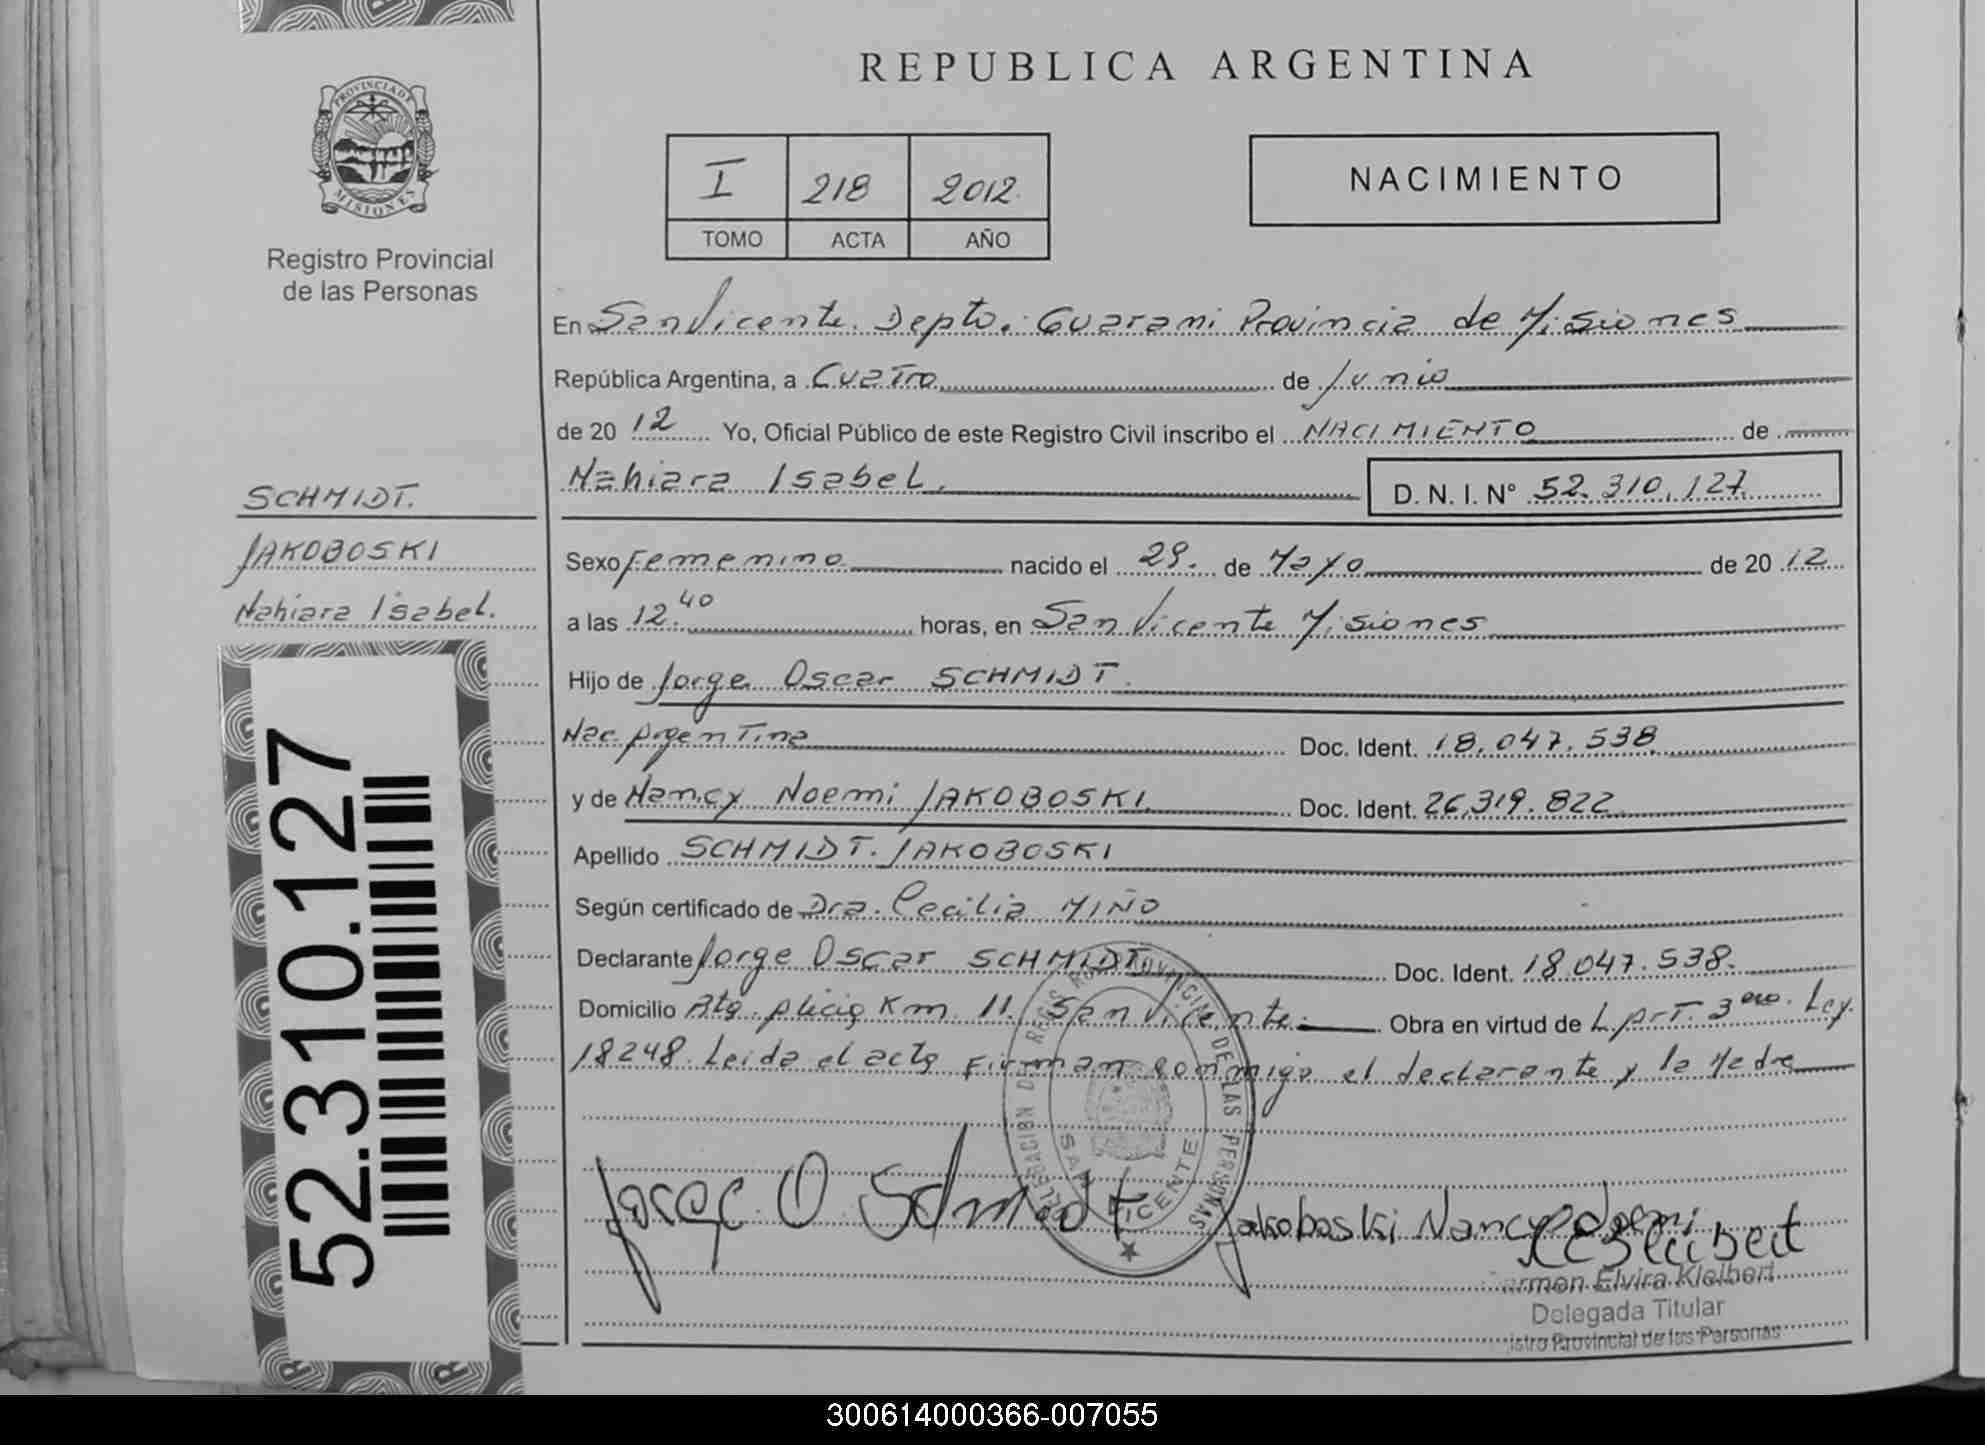 REPUBLICA ARGENTINA
PROVINCIA DE
MISIONES
Registro Provincial
de las Personas
I 218 2012
TOMO ACTA AÑO
NACIMIENTO
En San Vicente. Depto. Guarani Provincia de Misiones
República Argentina, a Cuatro de Junio
de 20 12 Yo, Oficial Público de este Registro Civil inscribo el NACIMIENTO de
Nahiara Isabel. D. N. I. N° 52.310.127
SCHMIDT.
JAKOBOSKI
Nahiara Isabel.
Sexo Femenino nacido el 29. de Mayo de 20 12
a las 12.40 horas, en San Vicente Misiones
Hijo de Jorge Oscar SCHMIDT.
Nac. Argentina Doc. Ident. 18.047.538
y de Nancy Noemi JAKOBOSKI Doc. Ident. 26.319.822
Apellido SCHMIDT. JAKOBOSKI
Según certificado de Dra. Cecilia MIÑO
Declarante Jorge Oscar SCHMIDT Doc. Ident. 18.047.538.
Domicilio Km. 11. San Vicente. Obra en virtud de L. Art. 3ero. Ley.
18248. Leida el acta Firman conmigo el declarante y la Madre
52.310.127
DELEGACION DEL REGISTRO PROVINCIAL DE LAS PERSONAS
SAN VICENTE
Jorge O Schmidt
Jakoboski Nancy Noemi
Kleibert
armen Elvira Kleibert
Delegada Titular
istro Provincial de las Personas
300614000366-007055